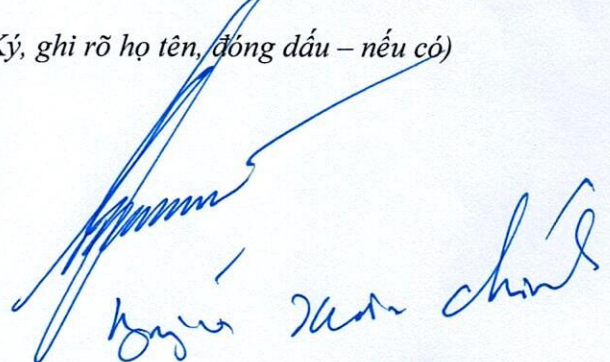 Ký, ghi rõ họ tên, đóng dấu – nếu có)
Nguyễn Xuân Chính